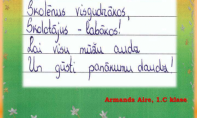 Skolēnus visgudrākos,
Skolotājus - labākos!
Lai visu mūžu auda
Un gūsti panākumu daudz!
Armands Aire, 1.C klase